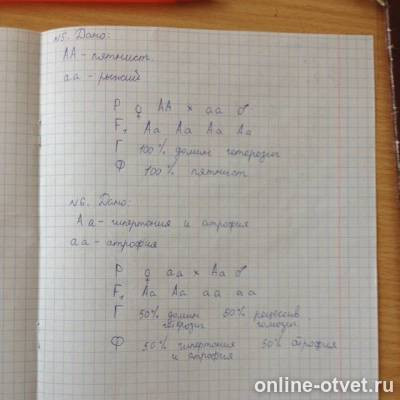 №5. Дано:
АА - пятнист.
аа - рыжий
Р ♀ АА × аа ♂
F₁ Аа Аа Аа Аа
Г 100% домин гетерозиг
Ф 100% пятнист
№6. Дано:
Аа - гипертония и атрофия
аа - атрофия
Р ♀ аа × Аа ♂
F₁ Аа Аа аа аа
Г 50% домин 50% рецессив
гомозиг
Ф 50% гипертония 50% атрофия
и атрофия
online-otvet.ru